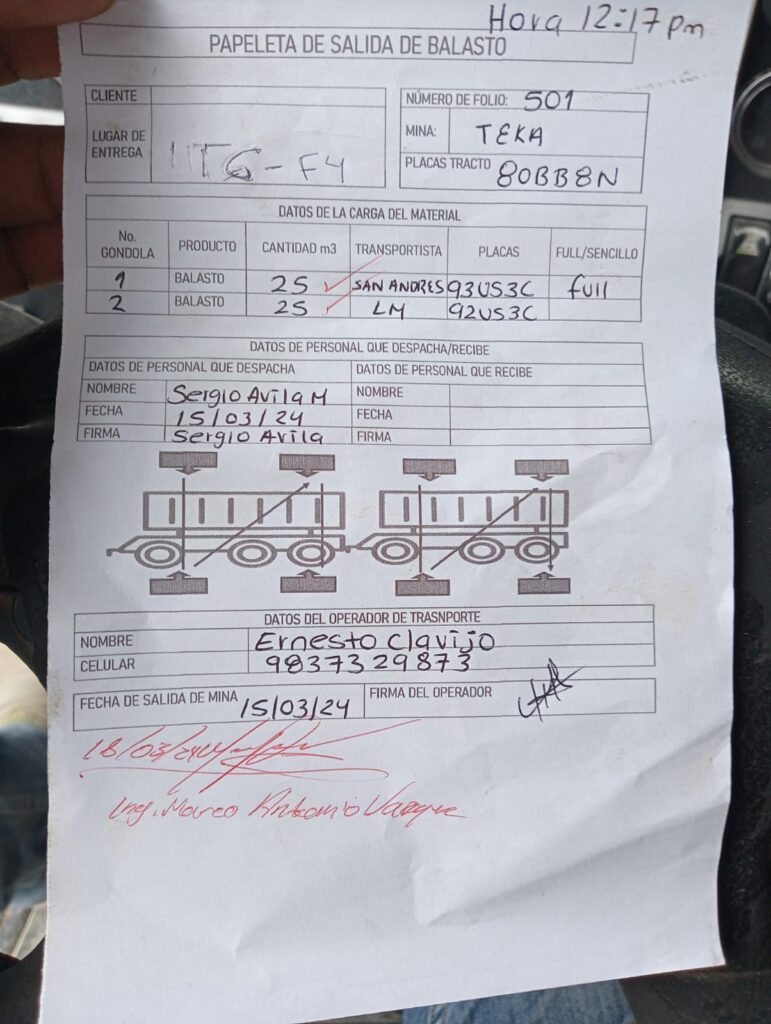 Hora 12:17 pm
PAPELETA DE SALIDA DE BALASTO
CLIENTE
LUGAR DE ENTREGA
F4
NÚMERO DE FOLIO: 501
MINA: TEKA
PLACAS TRACTO 80BB8N
DATOS DE LA CARGA DEL MATERIAL
No. GONDOLA PRODUCTO CANTIDAD m3 TRANSPORTISTA PLACAS FULL/SENCILLO
1 BALASTO 25 SAN ANDRES 93US3C full
2 BALASTO 25 LM 92US3C
DATOS DE PERSONAL QUE DESPACHA/RECIBE
DATOS DE PERSONAL QUE DESPACHA DATOS DE PERSONAL QUE RECIBE
NOMBRE Sergio Avila M NOMBRE
FECHA 15/03/24 FECHA
FIRMA Sergio Avila FIRMA
DATOS DEL OPERADOR DE TRASNPORTE
NOMBRE Ernesto Clavijo
CELULAR 9837329873
FECHA DE SALIDA DE MINA 15/03/24 FIRMA DEL OPERADOR
18/03/24
Ing. Marco Antonio